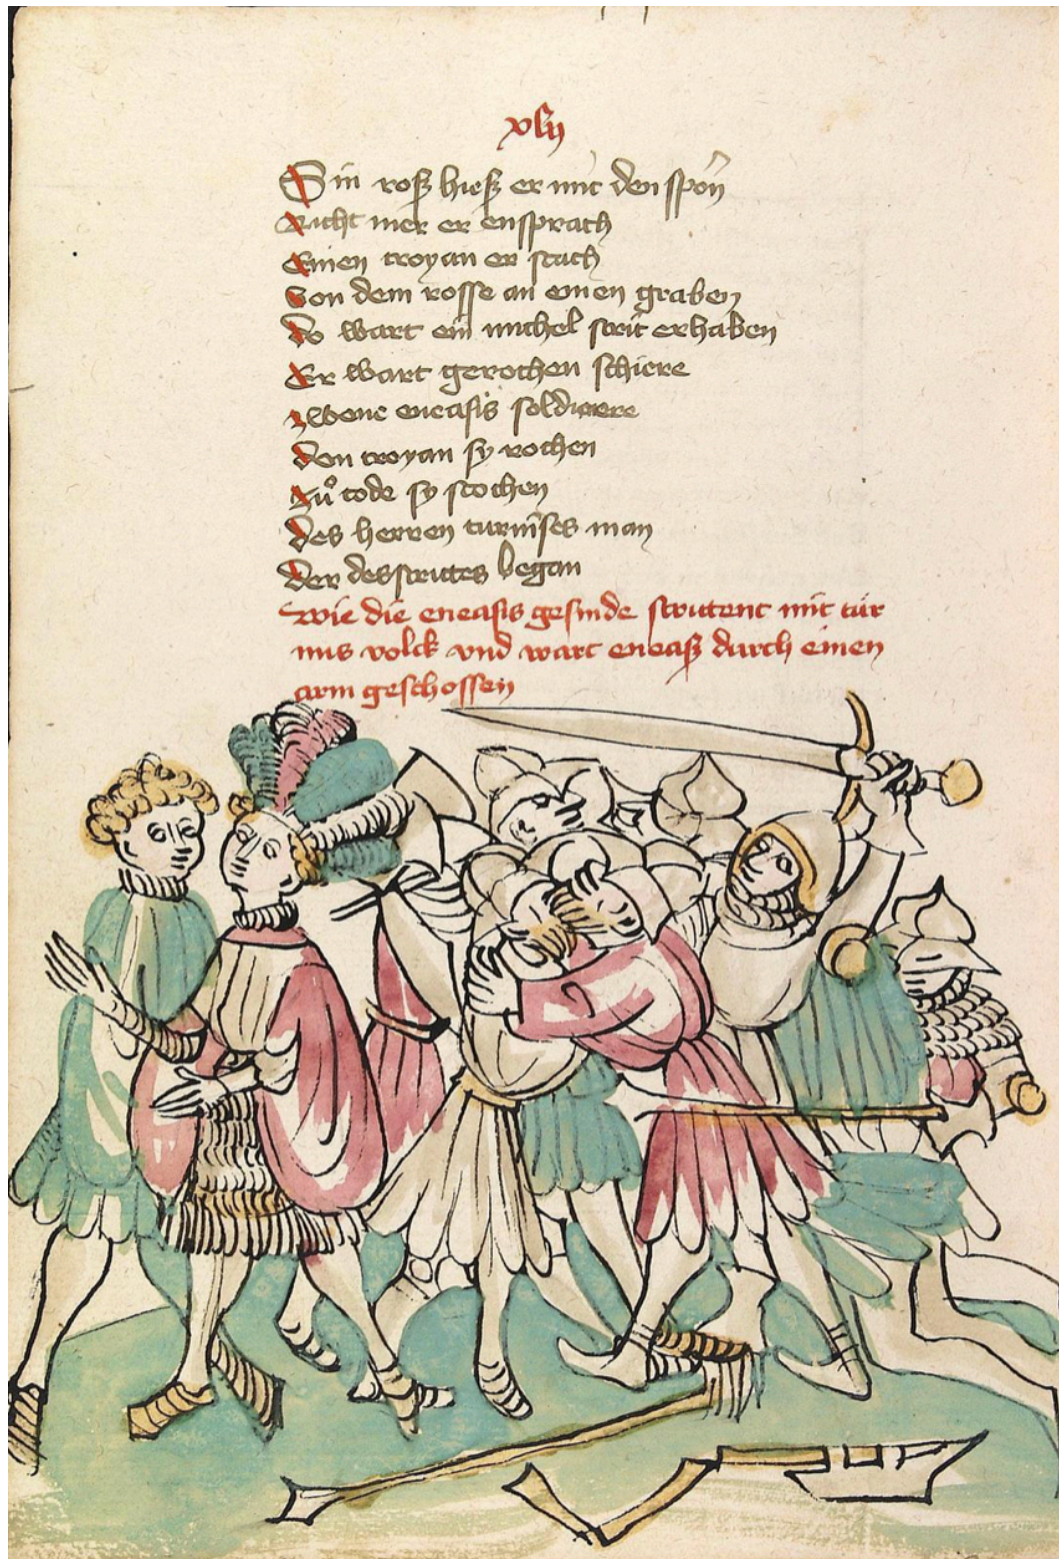 xlij
Sin roß hieß er mit den sporn
Nicht mer er ensprach
Einen troyan er stach
Von dem rosse an einen graben
Do wart ein michel strit erhaben
Er wart gerochen schiere
zwene eneasis soldiere
den troyan sy rochen
zů tode sy stochen
des herren turnuses man
der des strittes began
wie die eneasis gesinde stritent mit tur
nus volck vnd wart eneaß durch einen
arm geschossen